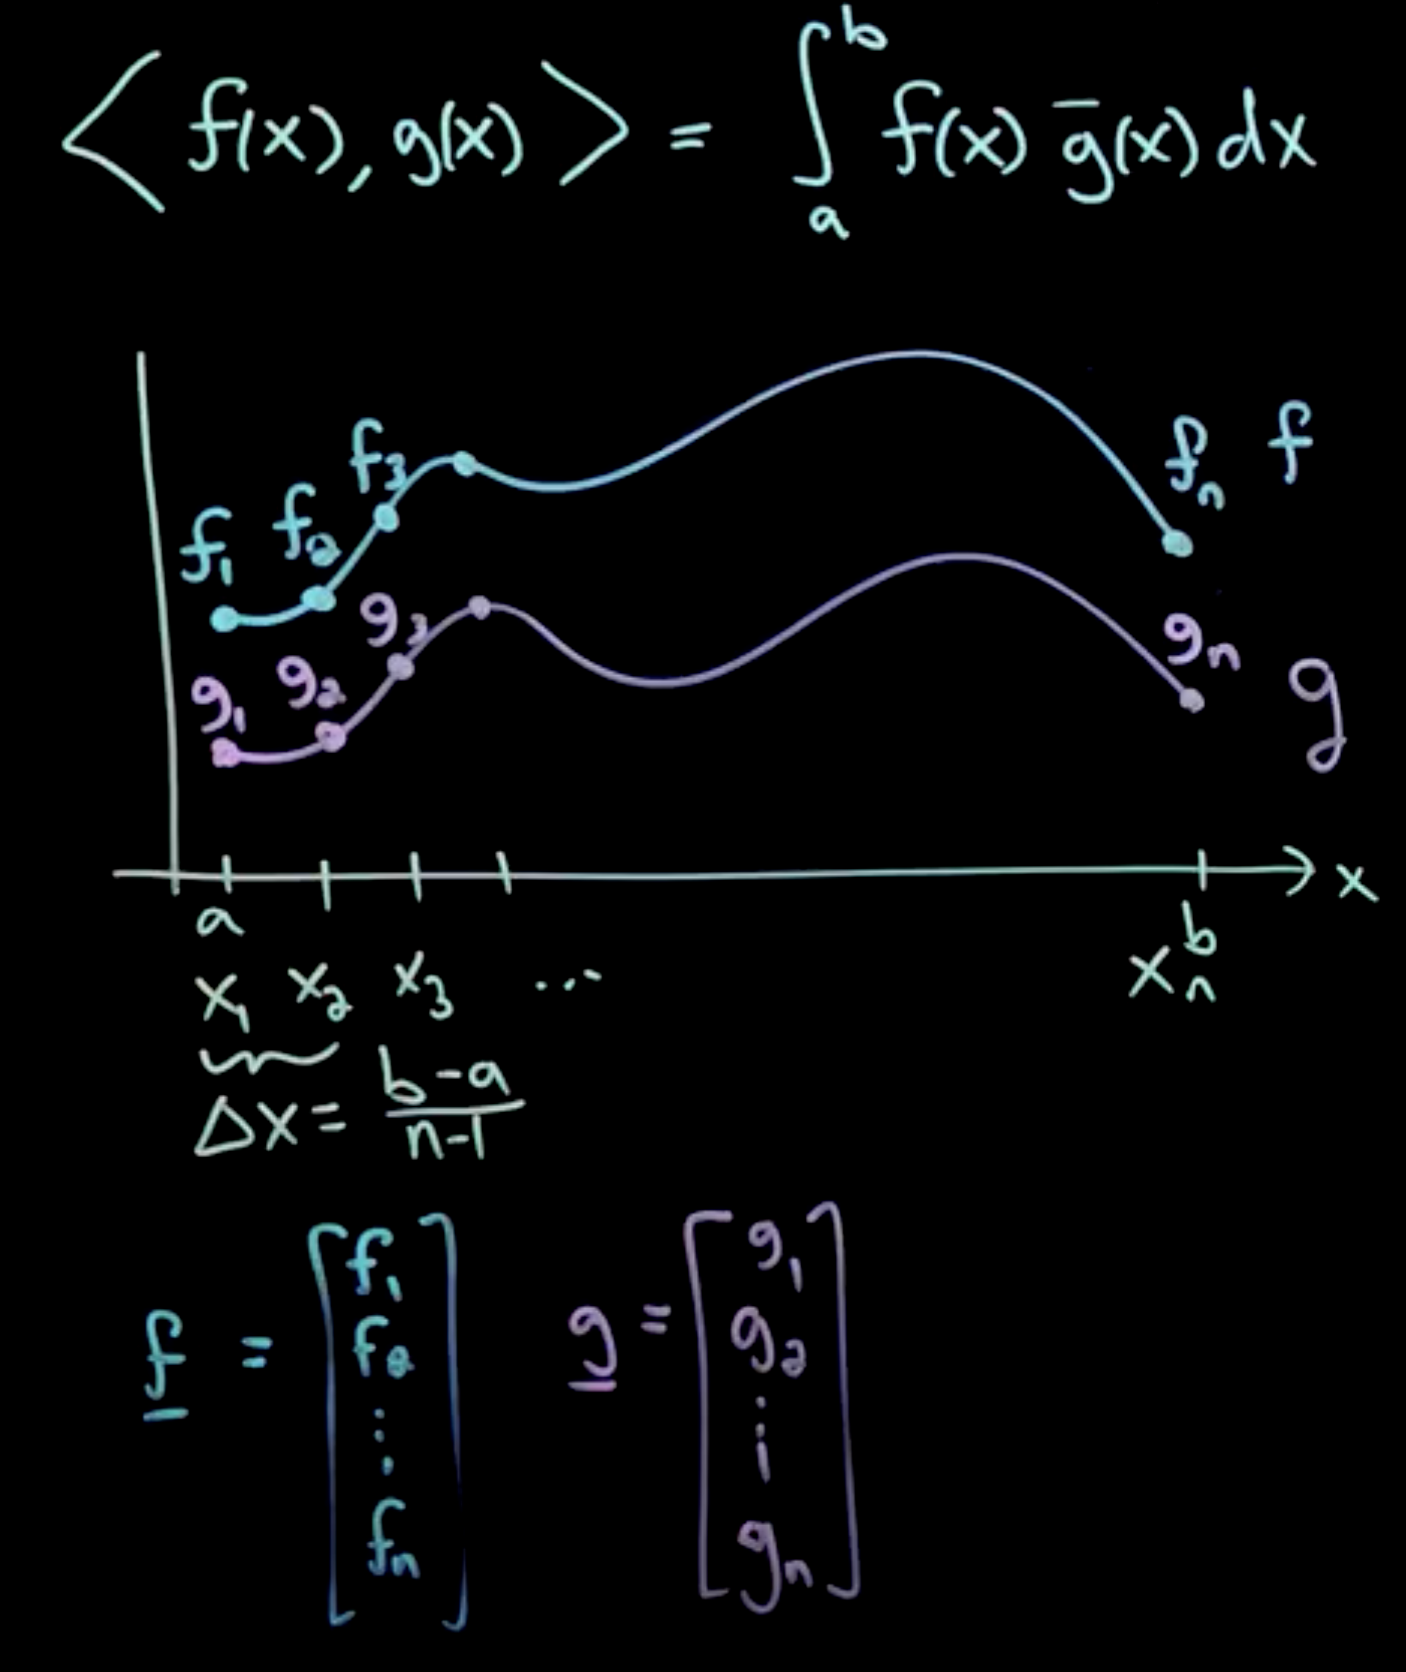 ⟨ f(x), g(x) ⟩ = ∫_a^b f(x) g̅(x) dx
f₁ f₂ f₃ fₙ f
g₁ g₂ g₃ gₙ g
x
a b
x₁ x₂ x₃ ... xₙ
Δx = (b-a)/(n-1)
f = [f₁ f₂ ⋮ fₙ] g = [g₁ g₂ ⋮ gₙ]